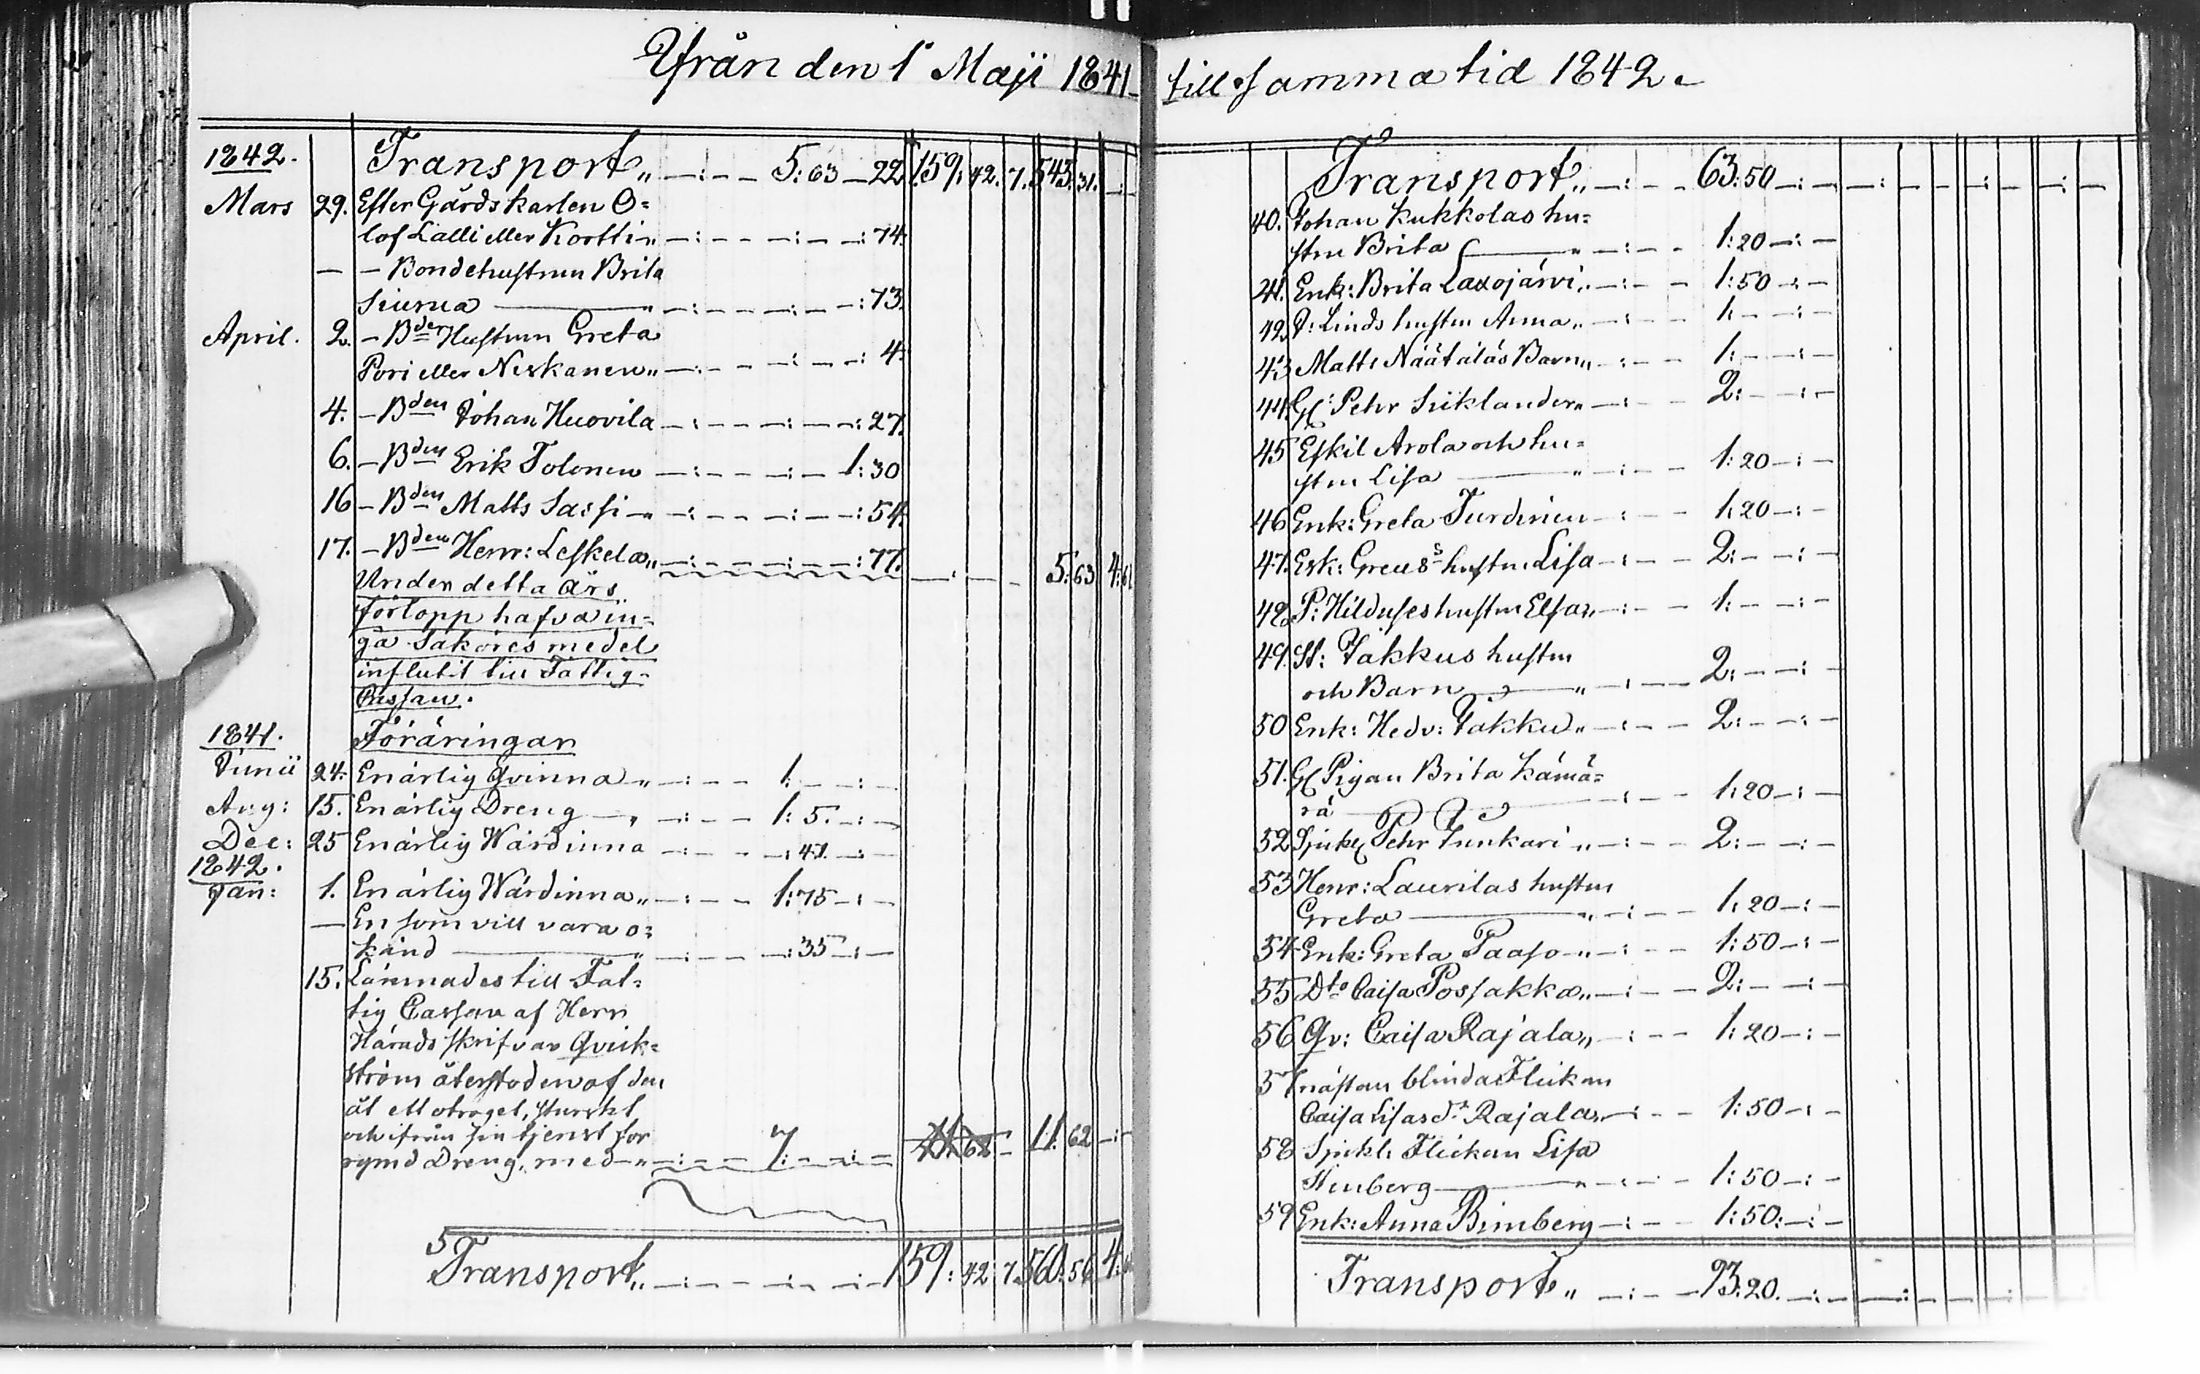 Ifrån den 1 Maji 1841
1842.
Transport „ 5: 63 22 159: 42. 7. 543. 31.
Mars 29. Efter Gårdskarlen O=
lof Lalli eller Kortti „ 74.
— — Bondehustrun Brita
Siurua „ 73.
April. 2. — Bden Hustrun Greta
Pori eller Niskanen „ 4.
4. — Bden Johan Huovila 27.
6. — Bden Erik Tolonen 1: 30
16 — Bden Matts Sassi „ 54.
17. — Bden Henr: Leskelä „ 77. 5: 63 4:
Under detta års
förlopp hafva in=
ga Saköres medel
influtit till Fattig-
Cassan.
1841. Föräringar
Junii 24. En ärlig Qvinna „ 1:
Aug: 15. En ärlig Dreng „ 1: 5.
Dec: 25 En ärlig Wärdinna 41.
1842.
Jan: 1. En ärlig Wärdinna „ 1: 75
— En som vill vara o=
känd „ 35
15. Lämnades till Fat=
tig Cassan af Herr
Häradsskrifvar Qvick=
ström återstoden af den
åt ett otroget, sturskt
och ifrån sin tjenst för
rymd Dreng, med „ 7: 11: 62
5
Transport „ 159: 42 7. 560: 56 4:
till samma tid 1842.
Transport „ 63: 50
40. Johan Kukkolas hu=
stru Brita „ 1: 20
41. Enk: Brita Laxojärvi „ 1: 50
42. J: Linds hustru Anna „ 1:
43 Matts Näätäläs Barn „ 1:
44. Gl: Pehr Siiklander „ 2:
45 Eskil Arola och hu=
stru Lisa „ 1: 20
46 Enk: Greta Turdinen 1: 20
47. Esk: Greus's hustru Lisa 2:
48. P: Hilduses hustru Elsa „ 1:
49. St: Jakkus hustru
och Barn „ 2:
50 Enk: Hedv: Jakku „ 2:
51. Gl Pigan Brita Kämä=
rä 1: 20
52 Sjukl Pehr Junkari „ 2:
53 Henr: Laurilas hustru
Greta „ 1: 20
54 Enk: Greta Paaso „ 1: 50
55 Dto Caisa Possakka „ 2:
56 Qv: Caisa Rajala „ 1: 20
57 nästan blinda Flickan
Caisa Lisa sdr Rajala „ 1: 50
58 Sjukl: Flickan Lisa
Stenberg „ 1: 50
59 Enk: Anna Bimberg 1: 50:
Transport „ 93: 20.